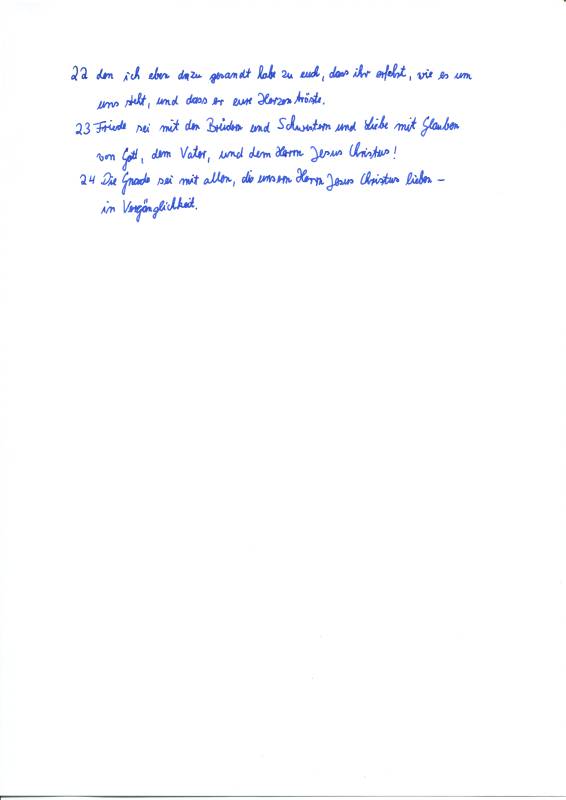 22 den ich eben dazu gesandt habe zu euch, dass ihr erfahrt, wie es um
uns steht, und dass er eure Herzen tröste.
23 Friede sei mit den Brüdern und Schwestern und Liebe mit Glauben
von Gott, dem Vater, und dem Herrn Jesus Christus!
24 Die Gnade sei mit allen, die unsern Herrn Jesus Christus lieben –
in Vergänglichkeit.